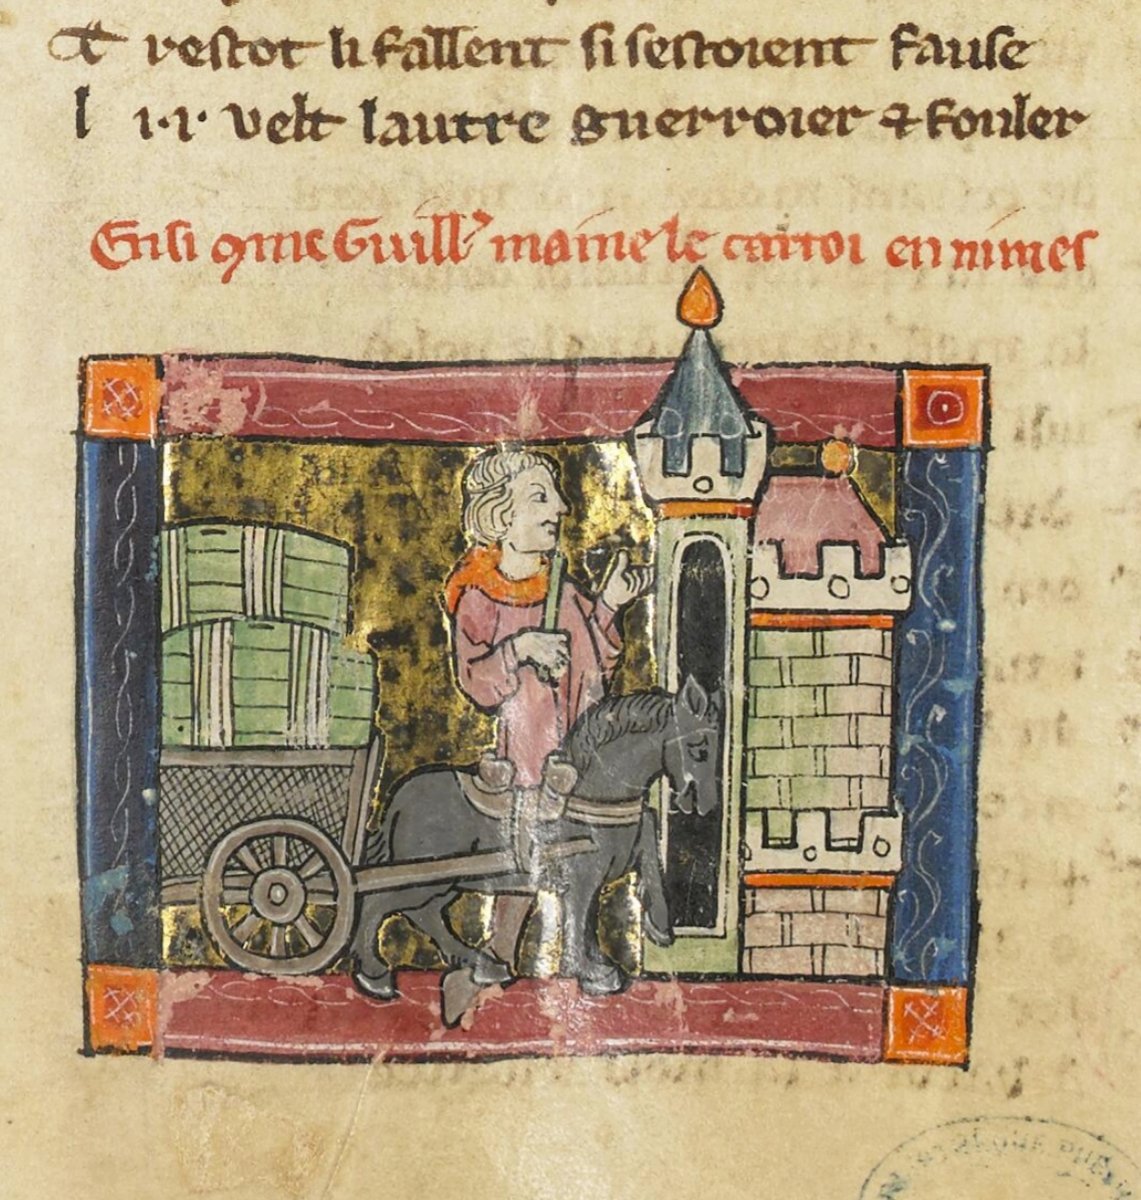 Et restot li fallent si sestoient fause
l i·i· velt lautre guerroier ⁊ fouler
Ensi ꝯme Guill’ maine le carroi en nimes